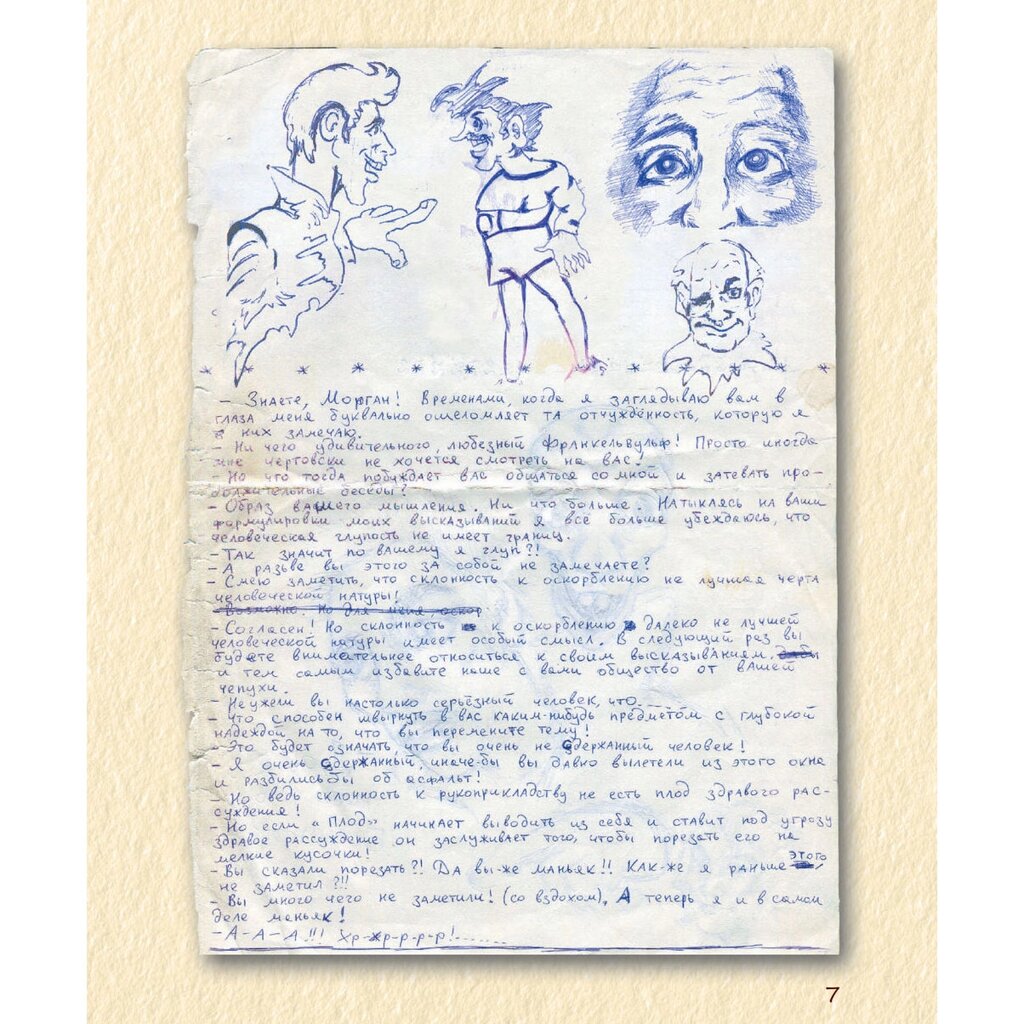 * * * * * * * * * * * *
- Знаете, Морган! Временами, когда я заглядываю вам в
глаза меня буквально ошеломляет та отчуждённость, которую я
в них замечаю.
- Ни чего удивительного, любезный Франкельвульф! Просто иногда
мне чертовски не хочется смотреть на вас.
- Но что тогда побуждает вас общаться со мной и затевать про-
должительные беседы?
- Образ вашего мышления. Ни что больше. Натыкаясь на ваши
формулировки моих высказываний я всё больше убеждаюсь, что
человеческая глупость не имеет границ.
- Так значит по вашему я глуп?!
- А разьве вы этого за собой не замечаете?
- Смею заметить, что склонность к оскорблению не лучшая черта
человеческой натуры!
- Возможно. Но для меня оскор
- Согласен! Но склонность к оскорблению далеко не лучшей
человеческой натуры имеет особый смысл. В следующий раз вы
будете внимательнее относиться к своим высказываниям
и тем самым избавите наше с вами общество от вашей
чепухи.
- Неужели вы настолько серьёзный человек, что....
- что способен швырнуть в вас каким-нибудь предметом с глубокой
надеждой на то, что вы перемените тему!
- Это будет означать, что вы очень не сдержанный человек!
- Я очень сдержанный, иначе-бы вы давно вылетели из этого окна
и разбились бы об асфальт!
- Но ведь склонность к рукоприкладству не есть плод здравого рас-
суждения!
- Но если «Плод» начинает выводить из себя и ставит под угрозу
здравое рассуждение он заслуживает того, чтобы порезать его на
мелкие кусочки!
- Вы сказали порезать?! Да вы-же маньяк!! Как-же я раньше этого
не заметил?!!
- Вы много чего не заметили! (со вздохом). А теперь я и в самом
деле маньяк!
- А-А-А!!! Хр-хр-р-р-р!.......
7